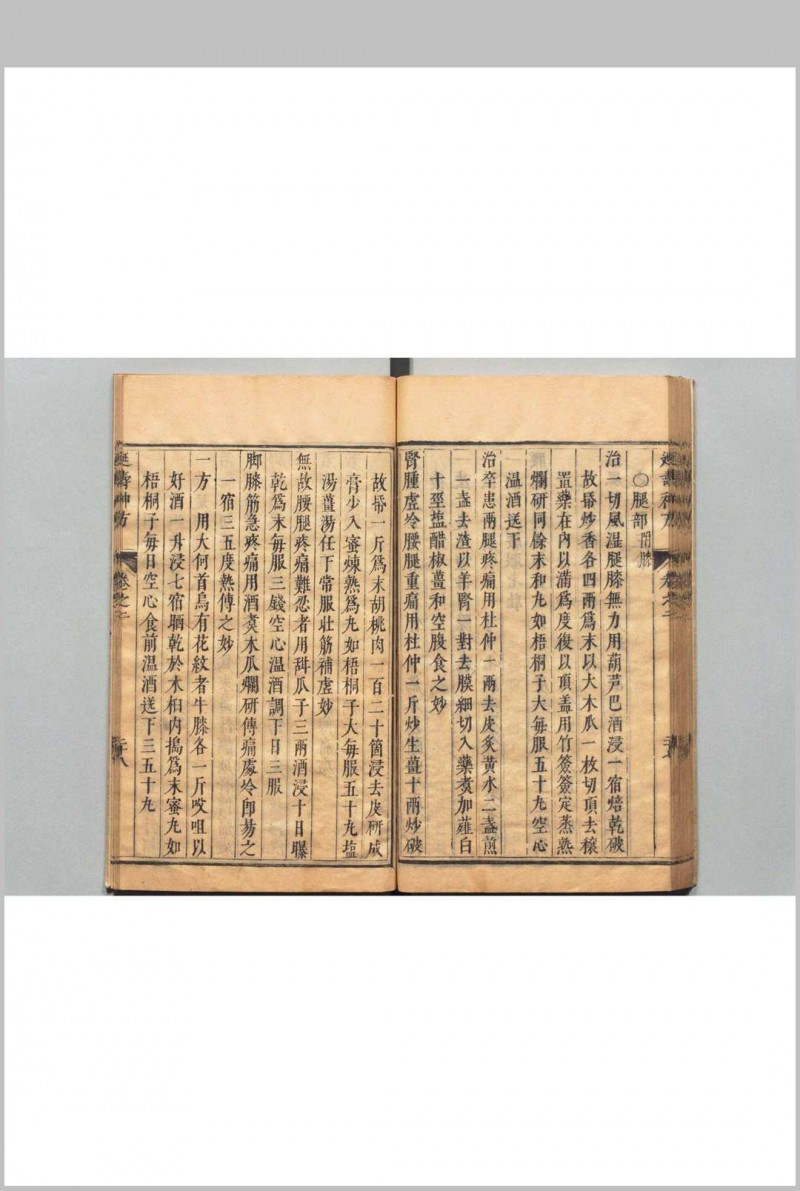 ○腿部附膝
治一切風温腿膝無力用葫芦巴酒浸一宿焙乾破
故帋炒香各四兩爲末以大木瓜一枚切頂去穰
置藥在内以滿爲度後以頂盖用竹簽簽定蒸熟
爛研同餘末和丸如梧桐子大每服五十丸空心
温酒送下
治卒患兩腿疼痛用杜仲一兩去皮炙黄水二盞煎
一盞去渣以羊腎一對去膜細切入藥煑加薤白
十莖盐醋椒薑和空腹食之妙
腎腫虚冷腰腿重痛用杜仲一斤炒生薑十兩炒破
故帋一斤爲末胡桃肉一百二十箇浸去皮研成
膏少入蜜煉熟爲丸如梧桐子大每服五十丸塩
湯薑湯任下常服壮筋補虚妙
無故腰腿疼痛難忍者用甜瓜子三兩酒浸十日曝
乾爲末每服三錢空心温酒調下日三服
脚膝筋急疼痛用酒煑木瓜爛研傅痛處冷即易之
一宿三五度熱傅之妙
一方　用大何首烏有花紋者牛膝各一斤㕮咀以
好酒一升浸七宿晒乾於木臼内搗爲末蜜丸如
梧桐子每日空心食前温酒送下三五十丸
神方
卷之二